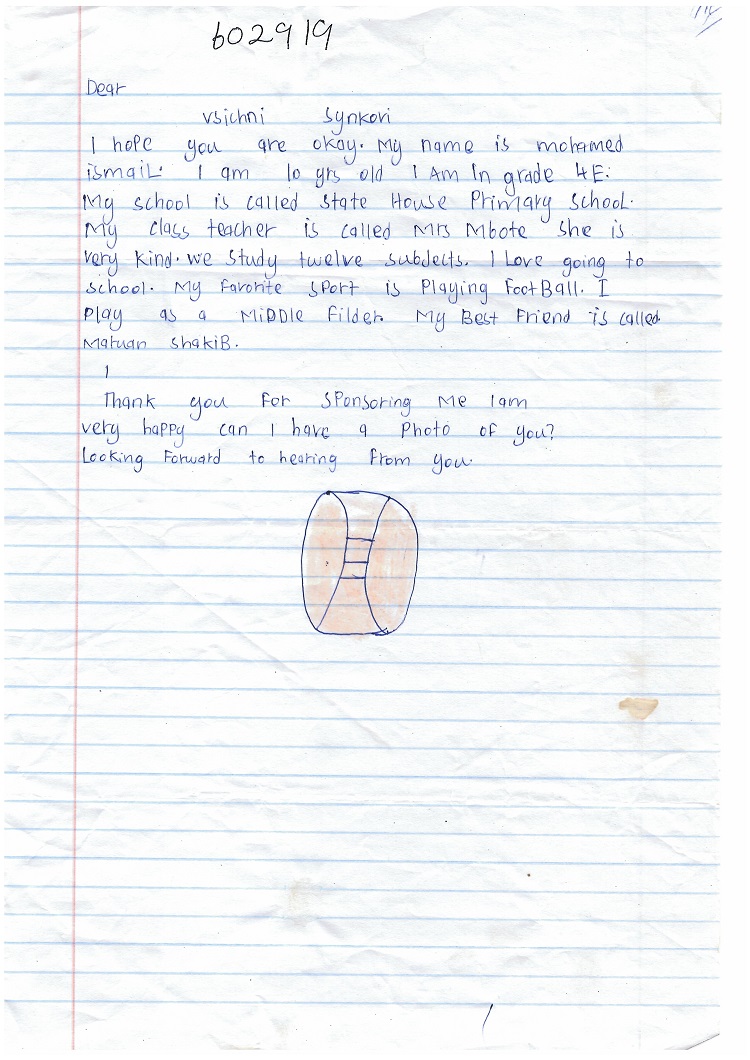 602919
Dear
vsichni synkovi
I hope you are okay. My name is mohamed
ismail. I am 10 yrs old I Am In grade 4E.
My school is called State House Primary School.
My class teacher is called Mrs Mbote she is
very kind. we study twelve subjects. I Love going to
school. My favorite sport is Playing FootBall. I
Play as a MiDDle filder. My Best Friend is called
Maruan ShakiB.
Thank you For SPonsoring Me Iam
very happy can I have a Photo of you?
Looking Forward to hearing from you.